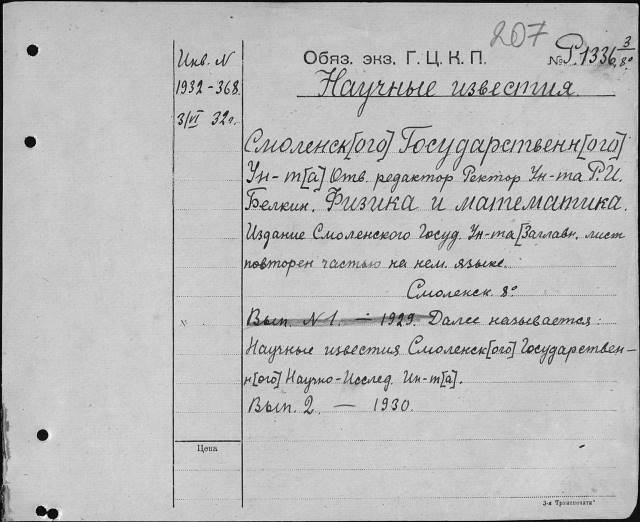 207
Обяз. экз. Г. Ц. К. П.
№ Р.1336 3/8°
Инв. N
1932-368.
3/VI 32 г.
Научные известия.
Смоленск[ого] Государственн[ого]
Ун-т[а] Отв. редактор Ректор Ун-та Р.И.
Белкин. Физика и математика.
Издание Смоленского Госуд. Ун-та [Заглавн. лист
повторен частью на нем. языке.
Смоленск. 8°
Вып. N 1. — 1929. Далее называется:
Научные известия Смоленск[ого] Государствен-
н[ого] Научно-Исслед. Ин-т[а].
Вып. 2. — 1930.
Цена
3-я „Транспечати"